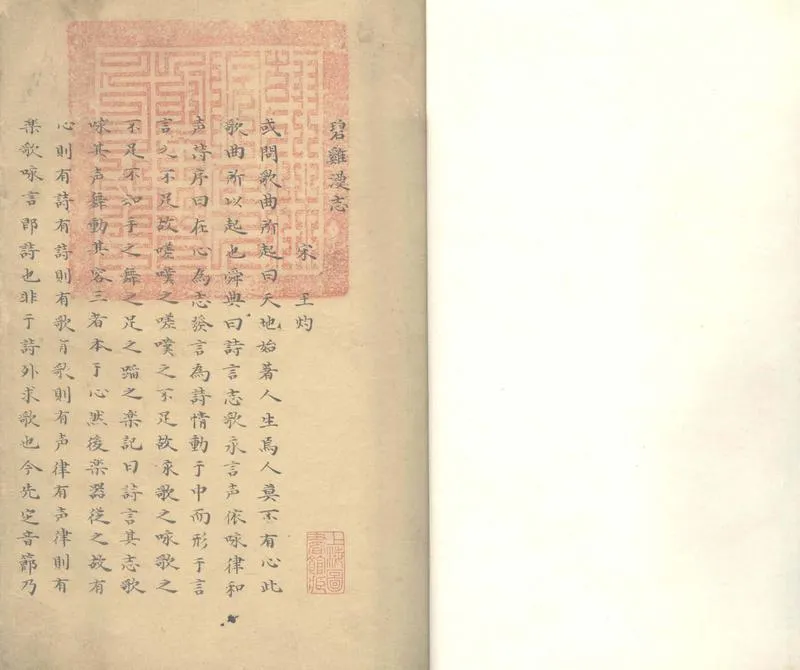 碧雞漫志
宋 王灼
或問歌曲所起曰天地始著人生焉人莫不有心此
歌曲所以起也舜典曰詩言志歌永言声依咏律和
声詩序曰在心為志發言為詩情動于中而形于言
言之不足故嗟嘆之嗟嘆之不足故永歌之咏歌之
不足不知手之舞之足之蹈之楽記曰詩言其志歌
咏其声舞動其容三者本于心然後楽器從之故有
心則有詩有詩則有歌有歌則有声律有声律則有
楽歌咏言即詩也非于詩外求歌也今先定音節乃
上海圖書館臧